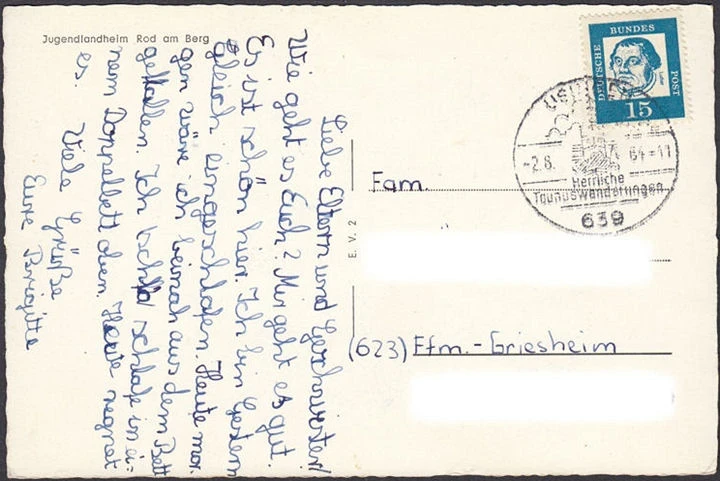 Jugendlandheim Rod am Berg
Liebe Eltern und Geschwister!
Wie geht es Euch? Mir geht es gut.
Es ist schön hier. Ich bin Gestern
gleich eingeschlafen. Heute mor-
gen wäre ich beinah aus dem Bett
gefallen. Ich schla schlafe in ei-
nem Doppelbett oben. Heute regnet
es. Viele Grüße
Eure Brigitte
E. V. 2
DEUTSCHE BUNDES POST
Luther
15
-2.8.
64-11
Herrliche
Taunuswanderungen
639
Fam.
(623) Ffm.-Griesheim